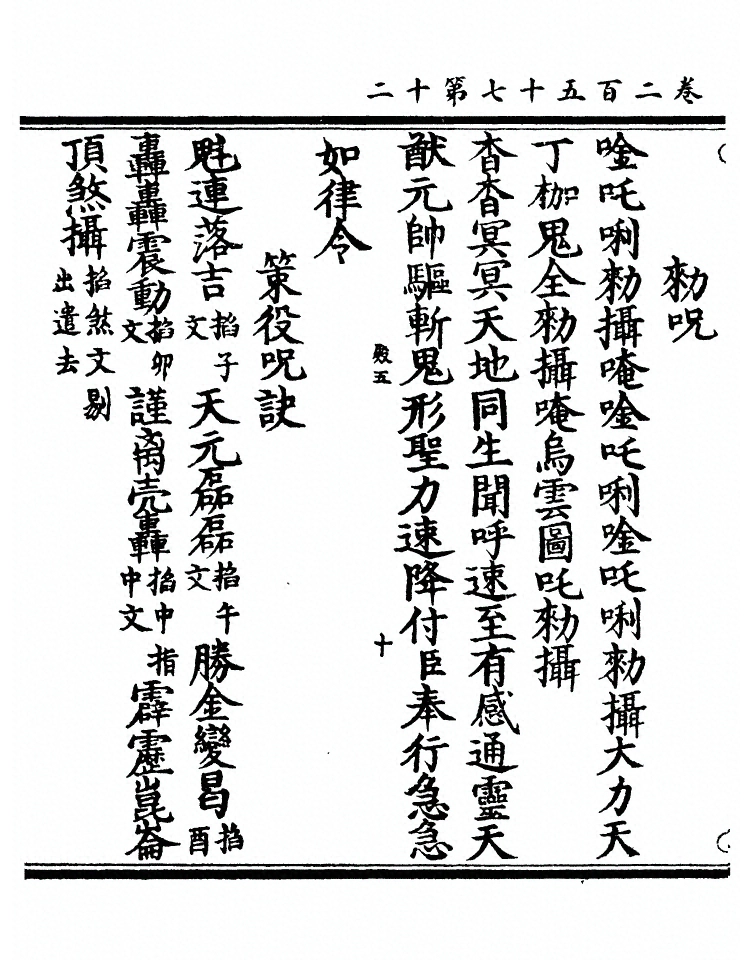 卷二百五十七第十二
勑呪
唫吒唎勑攝唵唫吒唎唫吒唎勑攝大力天
丁枷鬼全勑攝唵烏雲圖吒勑攝
杳杳冥冥天地同生聞呼速至有感通靈天
猷元帥驅斬鬼形聖力速降付臣奉行急急
殿五 十
如律令
策役呪訣
魁連落吉掐子文天元磊磊掐午文勝金變曷掐酉
轟轟震動掐卯文謹离壳轟掐中指中文霹靂崑崙
頂煞攝掐煞文剔出遣去